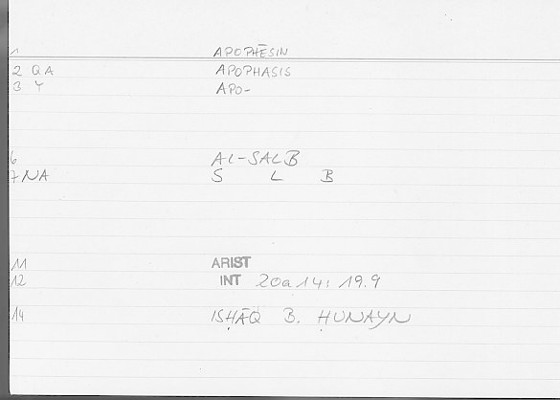 1 APOPHĒSIN
2 QA APOPHASIS
3 Y APO-
6 AL-SALB
7 NA S L B
11 ARIST
12 INT 20a14; 19.9
14 ISḤĀQ B. ḤUNAYN